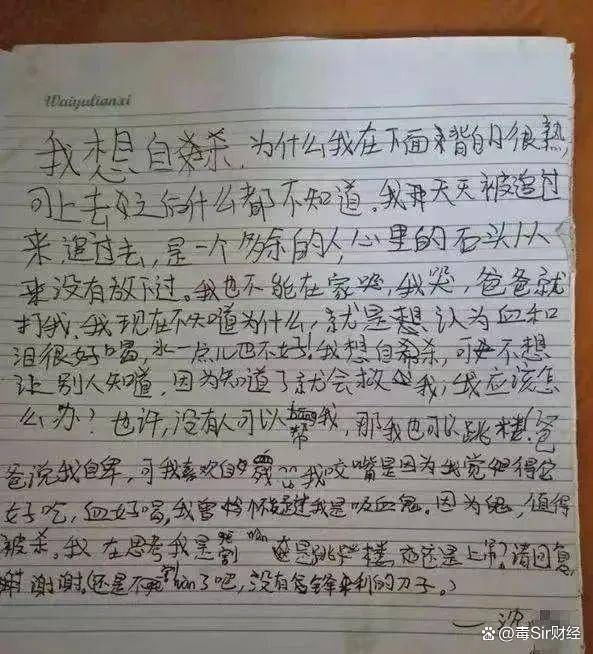 Waiyulianxi
我想自杀,为什么我在下面背的很熟,
可上去之后什么都不知道。我天天被追过
来追过去,是一个多余的人,心里的石头从
来没有放下过。我也不能在家哭,我哭,爸爸就
打我,我现在不知道为什么,就是想认为血和
泪很好喝,水一点儿也不好!我想自杀,可不想
让别人知道,因为知道了就会救我,我应该怎
么办?也许,没有人可以帮我,那我也可以跳楼!爸
爸说我自卑,可我喜欢自 我咬嘴是因为我觉得它
好吃,血好喝,我曾怀疑过我是吸血鬼。因为鬼,值得
被杀。我在思考我是割 wàn 还是跳楼,还是上吊?请回复,
谢谢。(还是不割 wàn 了吧,没有锋利的刀子。)
一沈
毒Sir财经